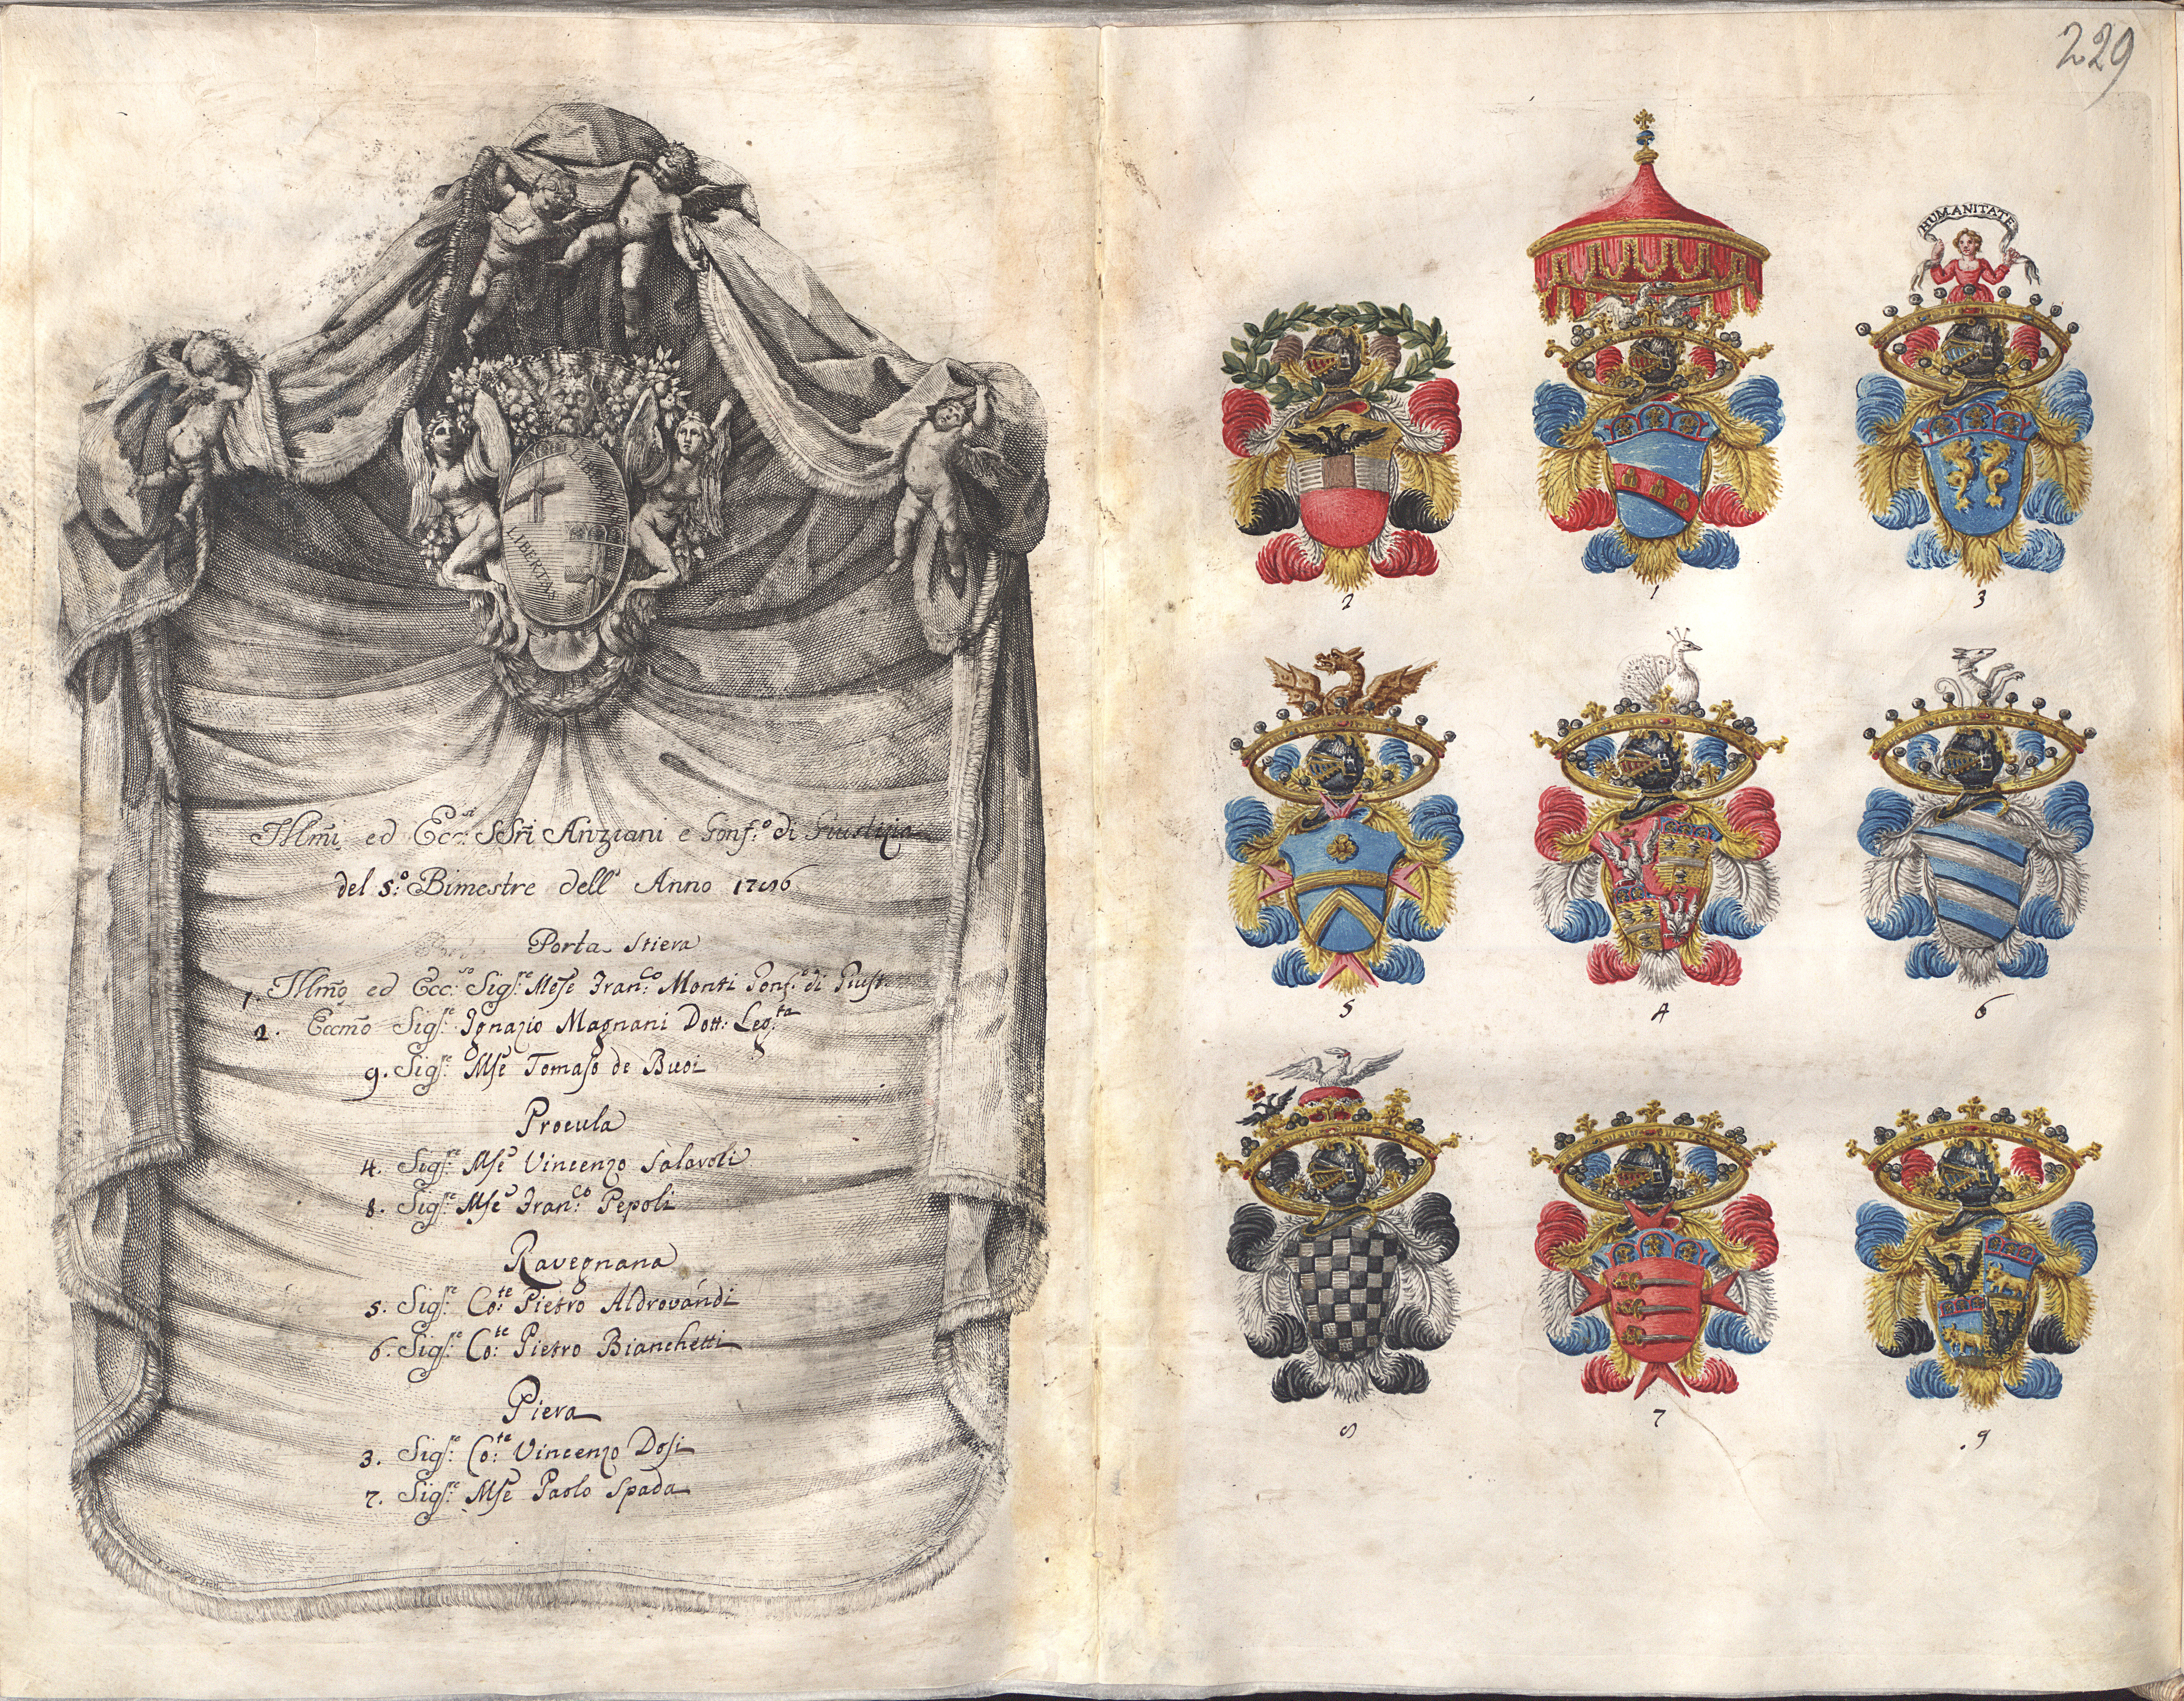 229
LIBERTAS
LIBERTAS
HUMANITATE
Illm̃i ed Ecc.si SSri Anziani e Gonf.o di Giustizia
del 5.o Bimestre dell' Anno
Porta Stiera
1. Illm̃o ed Ecc.so Sigr.e Mẽse Fran.co Monti Gonf.o di Giust.
2. Eccm̃o Sigr.e Ignazio Magnani Dott. Leg.ta
9. Sigr.e Mse Tomaso de Buoi
Procula
4. Sigr.e Mse Vincenzo Salaroli
8. Sigr.e Mse Fran.co Pepoli
Ravegnana
5. Sigr.e Co.te Pietro Aldrovandi
6. Sigr.e Co.te Pietro Bianchetti
Piera
3. Sigr.e Co.te Vincenzo Dosi
7. Sigr.e Mse Paolo Spada
2 1 3
5 4 6
8 7 9